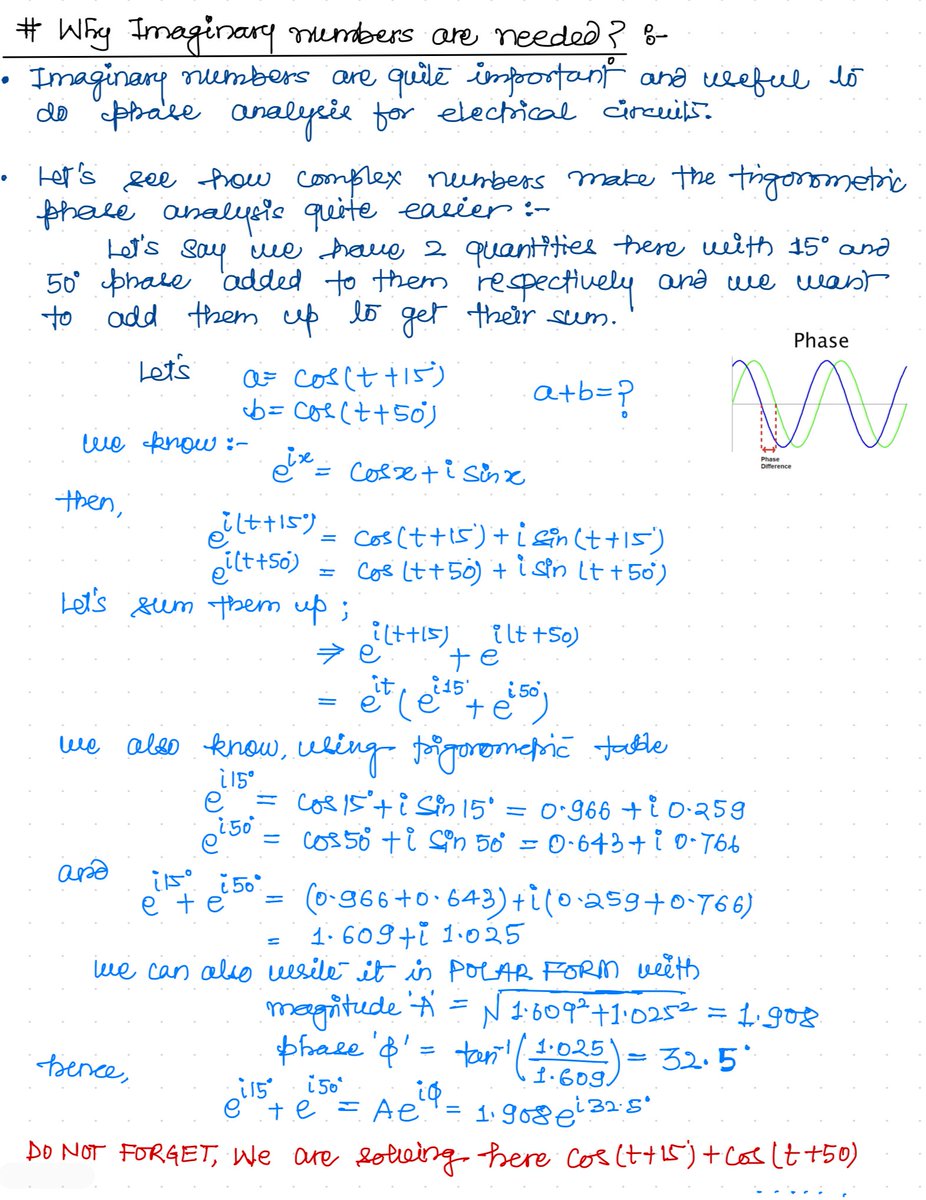 # Why Imaginary numbers are needed? :-
• Imaginary numbers are quite important and useful to
do phase analysis for electrical circuits.
• Let's see how complex numbers make the trigonometric
phase analysis quite easier :-
Let's say we have 2 quantities here with 15° and
50° phase added to them respectively and we want
to add them up to get their sum.
Let's a = cos(t+15°)
b = cos(t+50°)
a+b=?
Phase
Phase
Difference
we know :-
e^{ix} = cosx + i sinx
then,
e^{i(t+15°)} = cos(t+15°) + i sin(t+15°)
e^{i(t+50°)} = cos(t+50°) + i sin(t+50°)
Let's sum them up ;
⇒ e^{i(t+15)} + e^{i(t+50)}
= e^{it}(e^{i15°} + e^{i50°})
we also know, using trigonometric table
e^{i15°} = cos15° + i sin15° = 0.966 + i 0.259
e^{i50°} = cos50° + i sin 50° = 0.643 + i 0.766
and
e^{i15°} + e^{i50°} = (0.966+0.643)+i(0.259+0.766)
= 1.609+i 1.025
we can also write it in POLAR FORM with
magnitude 'A' = √1.609²+1.025² = 1.908
phase 'ϕ' = tan⁻¹(1.025/1.609) = 32.5°
hence,
e^{i15°} + e^{i50°} = Ae^{iϕ} = 1.908e^{i32.5°}
DO NOT FORGET, We are solving here cos(t+15°)+cos(t+50)
.......